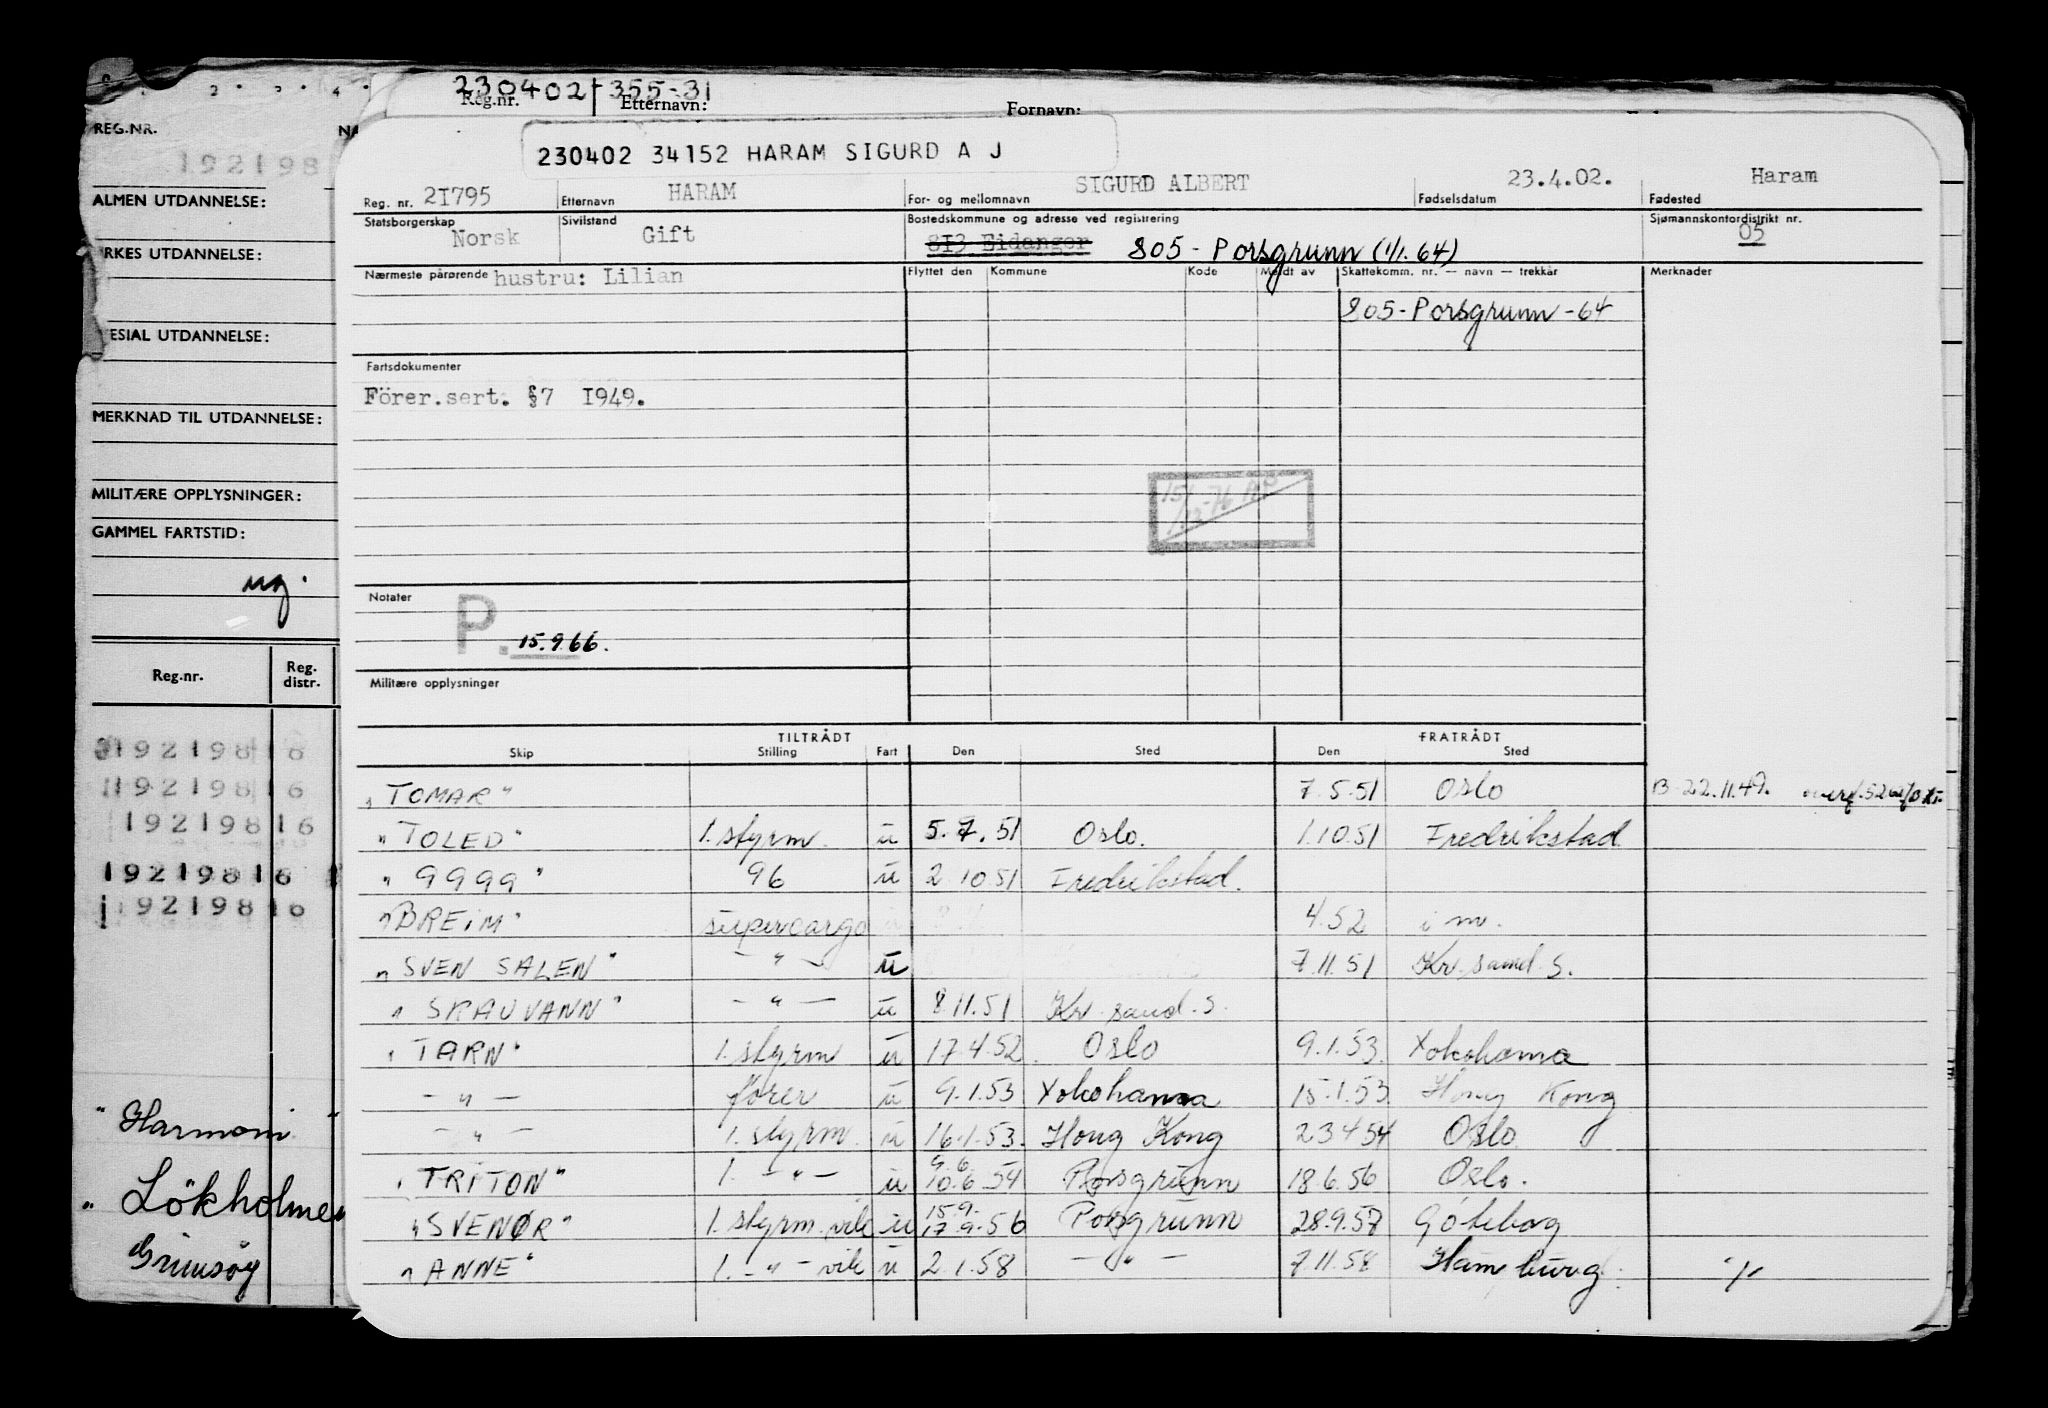 230402 355-31
Reg.nr. Etternavn: Fornavn:
2 · 3 · 4 ·
REG.NR.
192198
ALMEN UTDANNELSE:
RKES UTDANNELSE:
ESIAL UTDANNELSE:
MERKNAD TIL UTDANNELSE:
MILITÆRE OPPLYSNINGER:
GAMMEL FARTSTID:
ug.
Reg.nr. Reg. distr.
19219816
19219816
19219816
19219816
19219816
"Harmoni"
"Lökholmen
Grimsöy
230402 34152 HARAM SIGURD A J
Reg. nr. 2I795 Etternavn HARAM For- og mellomnavn SIGURD ALBERT Fødselsdatum 23.4.02. Fødested Haram
Statsborgerskap Norsk Sivilstand Gift Bostedskommune og adresse ved registrering 8I3 Eidanger 805 - Porsgrunn (1/1.64) Sjømannskontordistrikt nr. 05
Nærmeste pårørende hustru: Lilian Flyttet den Kommune Kode Meldt av Skattekomm. nr. — navn — trekkår Merknader
805 - Porsgrunn - 64
Fartsdokumenter
Förer.sert. §7 I949.
Notater
P. 15.9.66.
Militære opplysninger
TILTRÅDT FRATRÅDT
Skip Stilling Fart Den Sted Den Sted
"TOMAR" 7.5.51 Oslo B-22.11.49.
"TOLEDO" 1. styrm. u 5.7.51 Oslo. 1.10.51 Fredrikstad
"9999" 96 u 2.10.51 Fredrikstad.
"BREIM" supercargo 4.52 i m.
"SVEN SALEN" — " — u 7.11.51 Kr. sand. S.
"SKAUVANN" — " — u 8.11.51 Kr. sand. S.
"TARN" 1. styrm u 17.4.52. Oslo 9.1.53. Yokohama
— " — fører u 9.1.53 Yokohama 15.1.53 Hong Kong
— " — 1. styrm. u 16.1.53. Hong Kong 23454 Oslo
"TRITON" 1. — " — u 9.6 10.6.54 Porsgrunn 18.6.56 Oslo.
"SVENØR" 1. styrm. vik u 15.9. 17.9.56 Porsgrunn 28.9.57 Göteborg
"ANNE" 1. — " — vik u 2.1.58 — " — 7.11.58 Hamburg